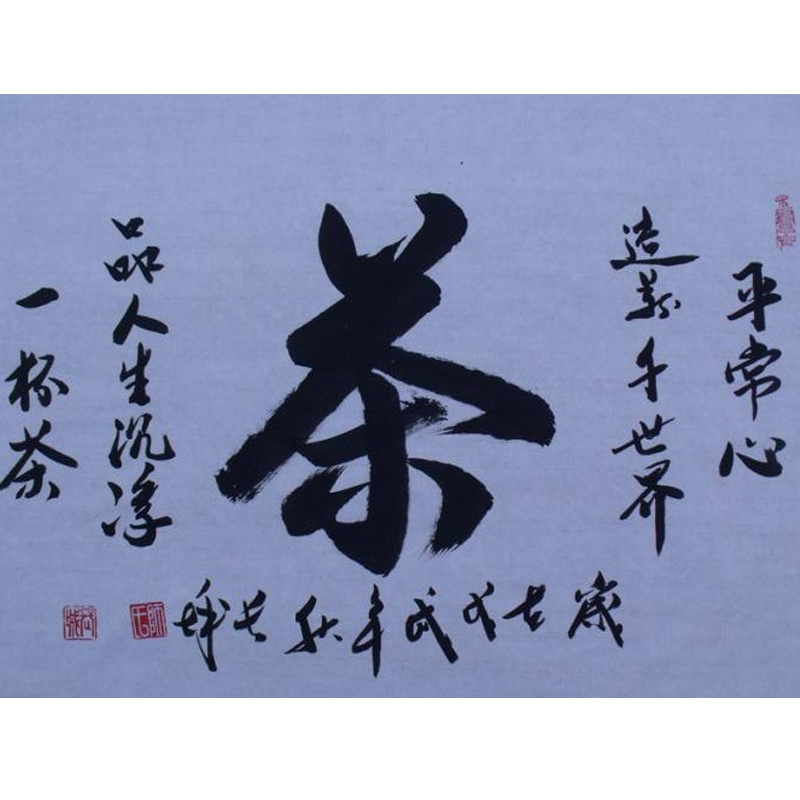 平常心
造萬千世界
茶
品人生沉浮
一杯茶
歲在戊戌年秋